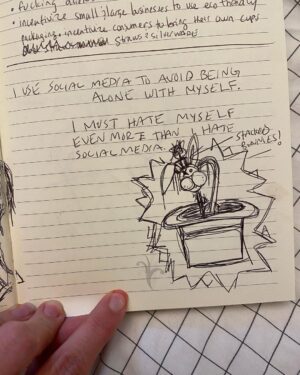 • fucking
• incentivize small/large businesses to use eco friendly
packaging + incentivize consumers to bring their own cups
straws & silverware
I USE SOCIAL MEDIA TO AVOID BEING
ALONE WITH MYSELF.
I MUST HATE MYSELF
EVEN MORE THAN I HATE
SOCIAL MEDIA.
STACKED
BUNNIES!